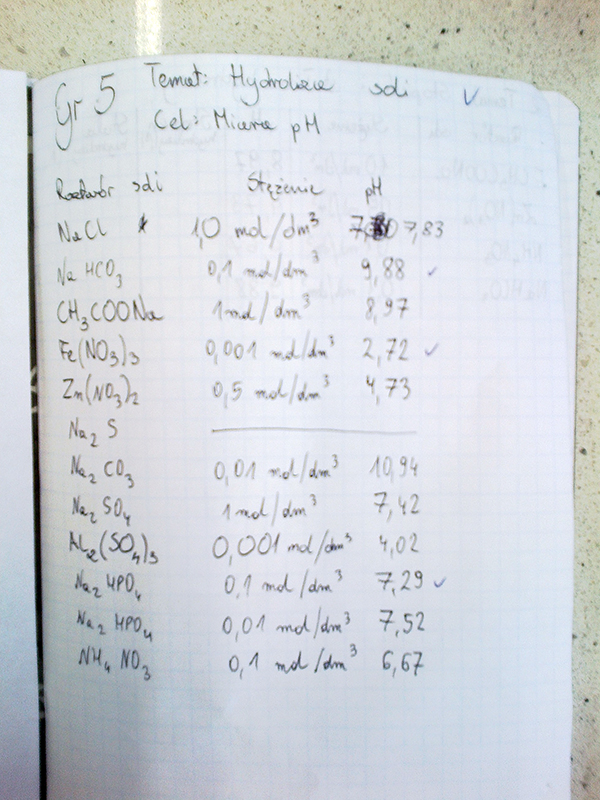 Gr 5
Temat: Hydroliza soli
Cel: Miara pH
Roztwór soli Stężenie pH
NaCl 1,0 mol/dm³ 7,83
NaHCO₃ 0,1 mol/dm³ 9,88
CH₃COONa 1 mol/dm³ 8,97
Fe(NO₃)₃ 0,001 mol/dm³ 2,72
Zn(NO₃)₂ 0,5 mol/dm³ 4,73
Na₂S
Na₂CO₃ 0,01 mol/dm³ 10,94
Na₂SO₄ 1 mol/dm³ 7,42
Al₂(SO₄)₃ 0,001 mol/dm³ 4,02
Na₂HPO₄ 0,1 mol/dm³ 7,29
Na₂HPO₄ 0,01 mol/dm³ 7,52
NH₄NO₃ 0,1 mol/dm³ 6,67